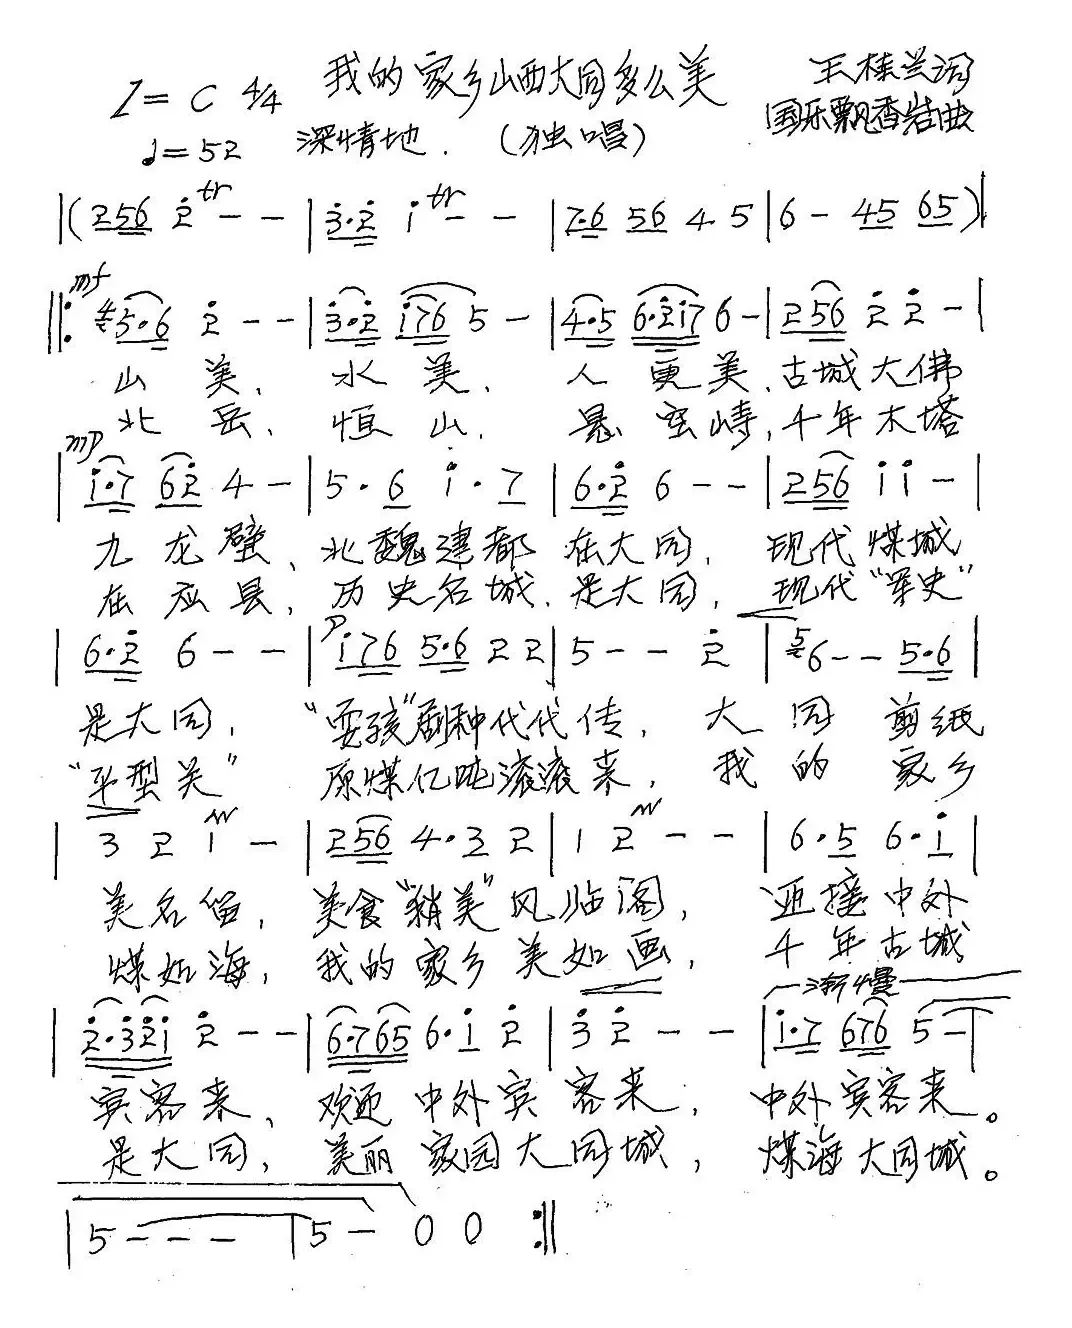 1=C 4/4 我的家乡山西大同多么美 王桂兰词
♩=52 深情地. (独唱) 国乐飘香岩曲
|(256 2 tr - - | 3·2 1 tr - - | 7·6 56 4 5 | 6 - 45 65)|
mf
‖: 5·6 2 - - | 3·2 176 5 - | 4·5 6·217 6 - | 256 2 2 - |
山美、水美、人更美、古城大佛
北岳、恒山、悬空峙,千年木塔
mp
| 1·7 62 4 - | 5·6 1·7 | 6·2 6 - - | 256 1 1 - |
九龙壁、北魏建都在大同,现代煤城
在应县,历史名城、是大同,现代“军史”
| 6·2 6 - - | p 176 5·6 2 2 | 5 - - 2 | 5 6 - - 5·6 |
是大同,“耍孩”剧种代代传,大同剪纸
“平型关”原煤亿吨滚滚来,我的家乡
| 3 2 1 - | 256 4·3 2 | 1 2 - - | 6·5 6·1 |
美名留,美食“稍美”凤临阁,迎接中外
煤如海,我的家乡美如画,千年古城
渐慢
| 2·321 2 - - | 6·765 6·1 2 | 3 2 - - | 1·7 676 5 - |
宾客来、欢迎中外宾客来,中外宾客来。
是大同,美丽家园大同城,煤海大同城。
| 5 - - - | 5 - 0 0 :‖